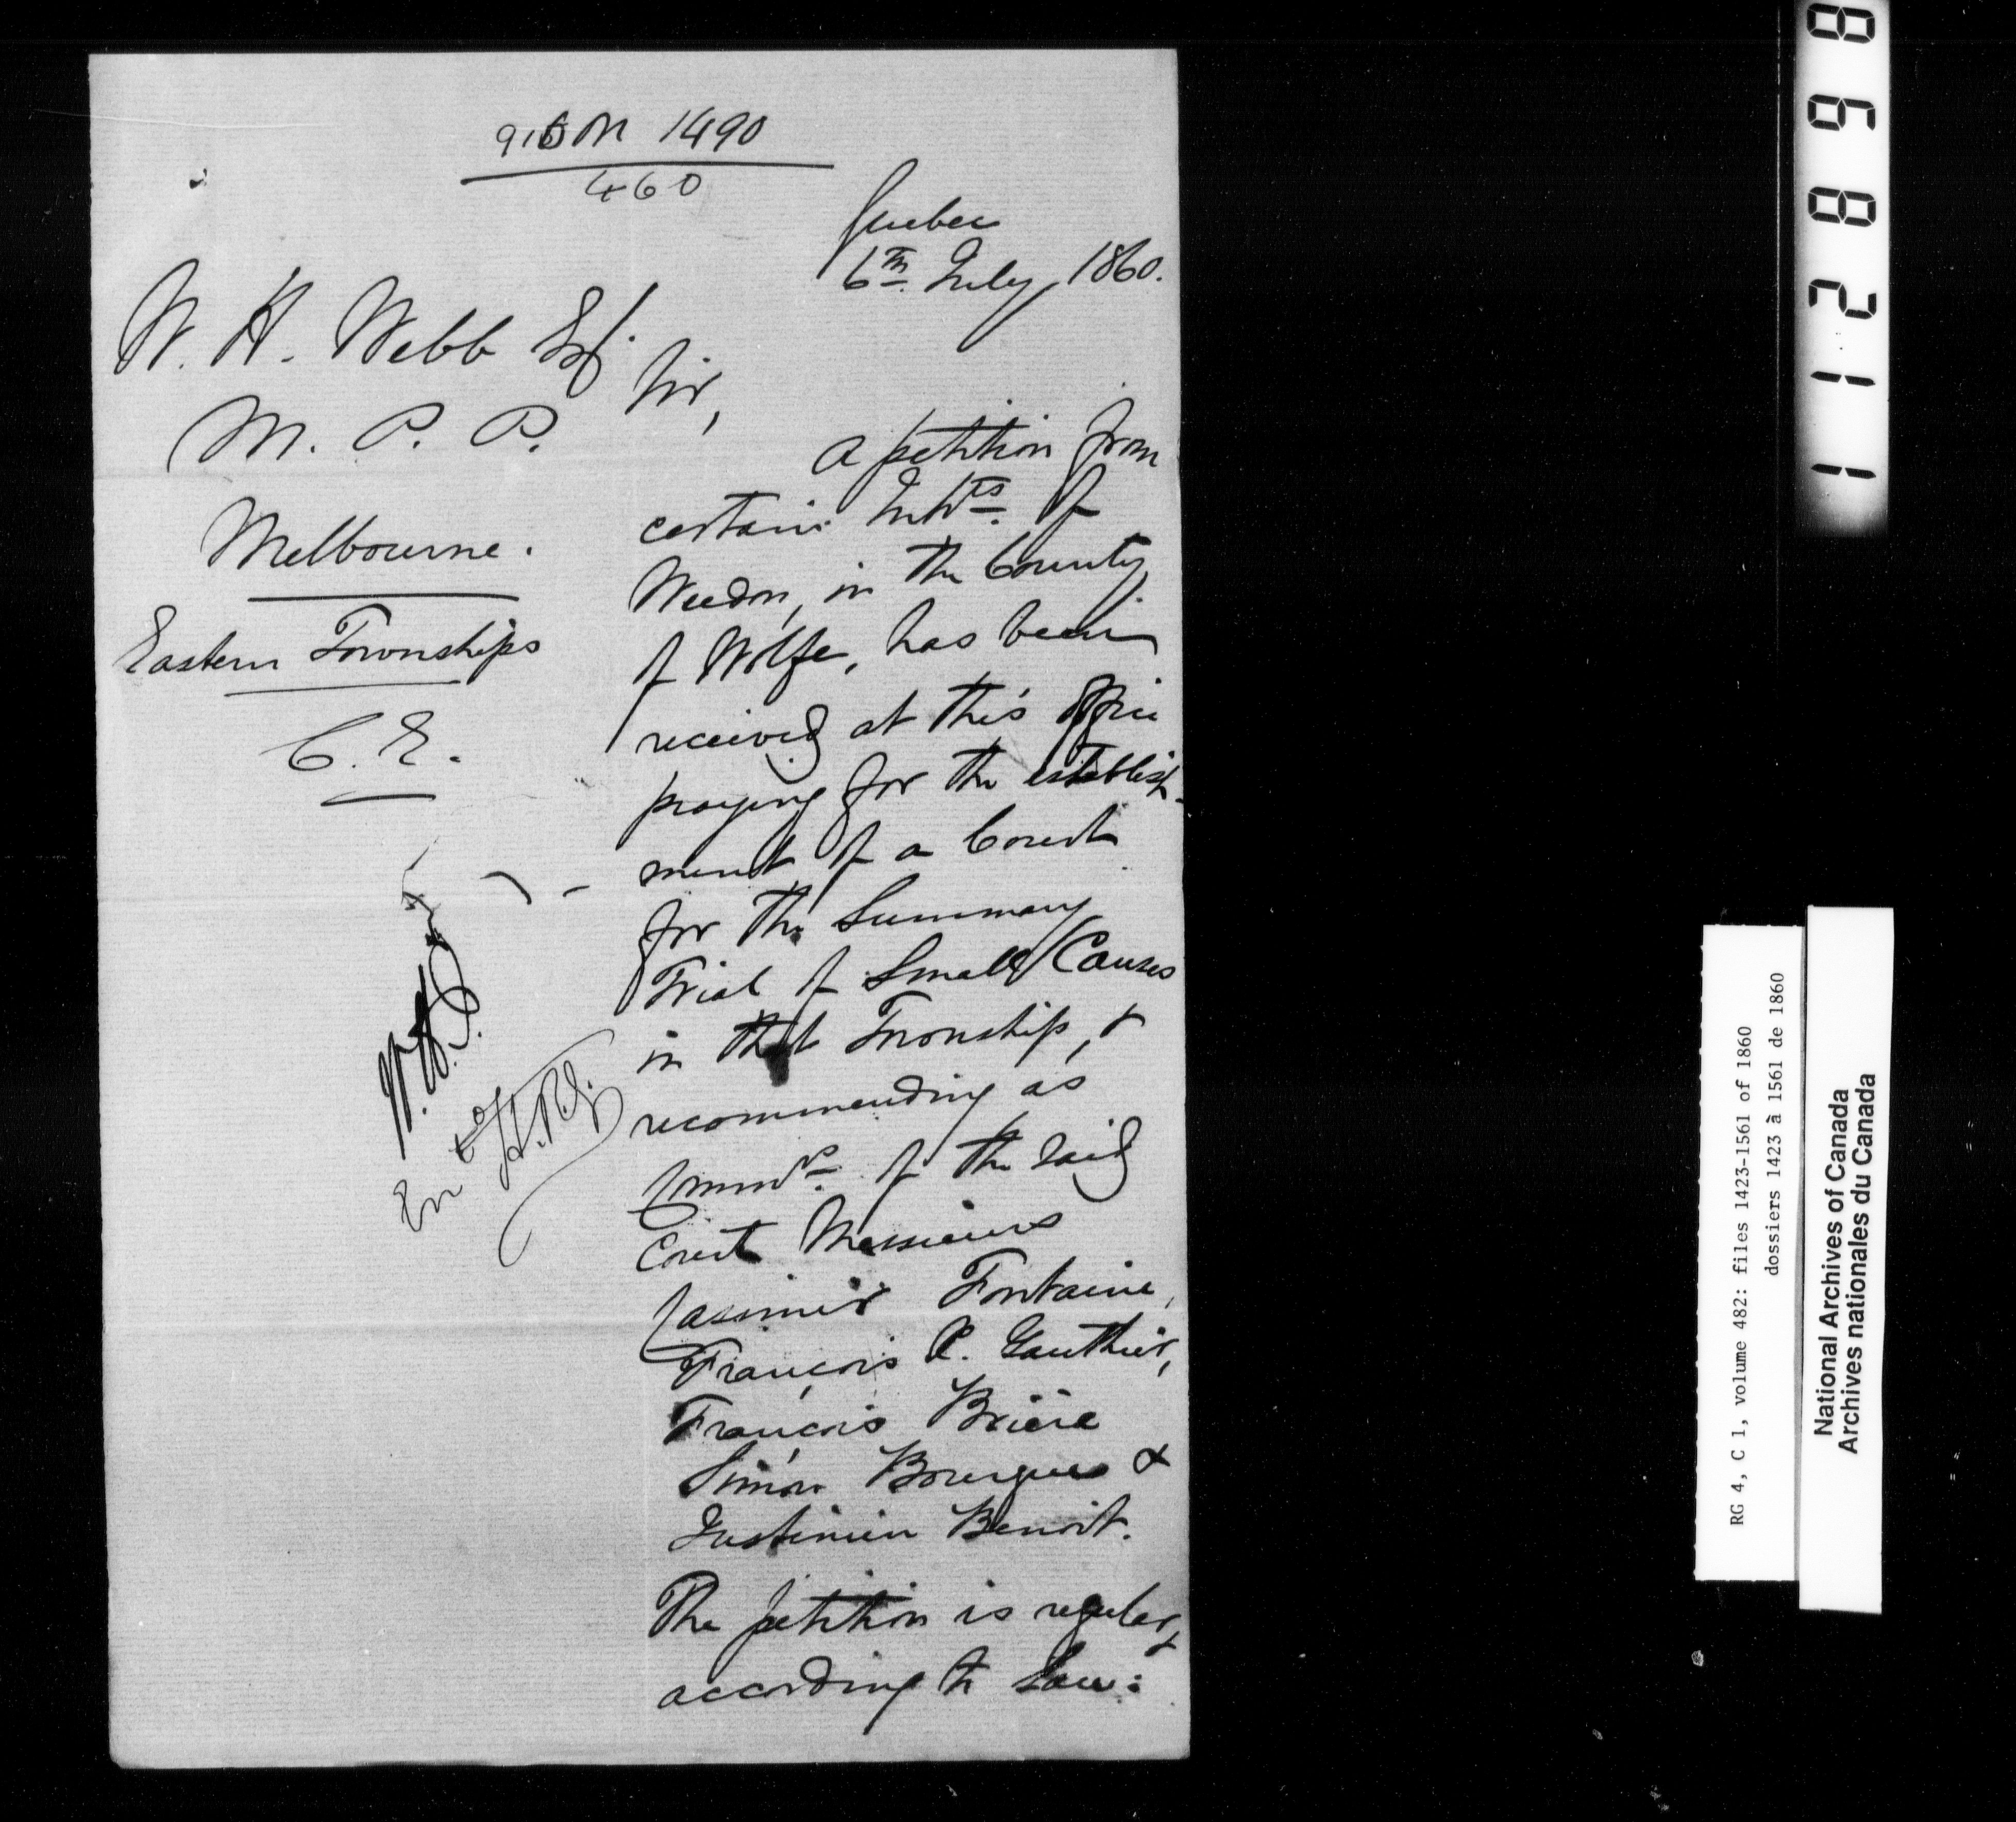 1490
460
Quebec
6th. July, 1860.
W. H. Webb Esq.
M. P. P.
Melbourne.
Eastern Townships
C. E.
Sir,
A petition from
certain Inhts. of
Weedon, in the County
of Wolfe, has been
received at this Office
praying for the establish-
ment of a Court
for the Summary
Trial of Small Causes
in that Township, &
recommending as
Commrs. of the said
Court Messieurs
Casimir Fontaine,
François P. Gauthier,
François Brière
Simon Bourques &
Justinien Benoit.
The petition is regular, &
according to Law:
112898
RG 4, C 1, volume 482: files 1423-1561 of 1860
dossiers 1423 à 1561 de 1860
National Archives of Canada
Archives nationales du Canada